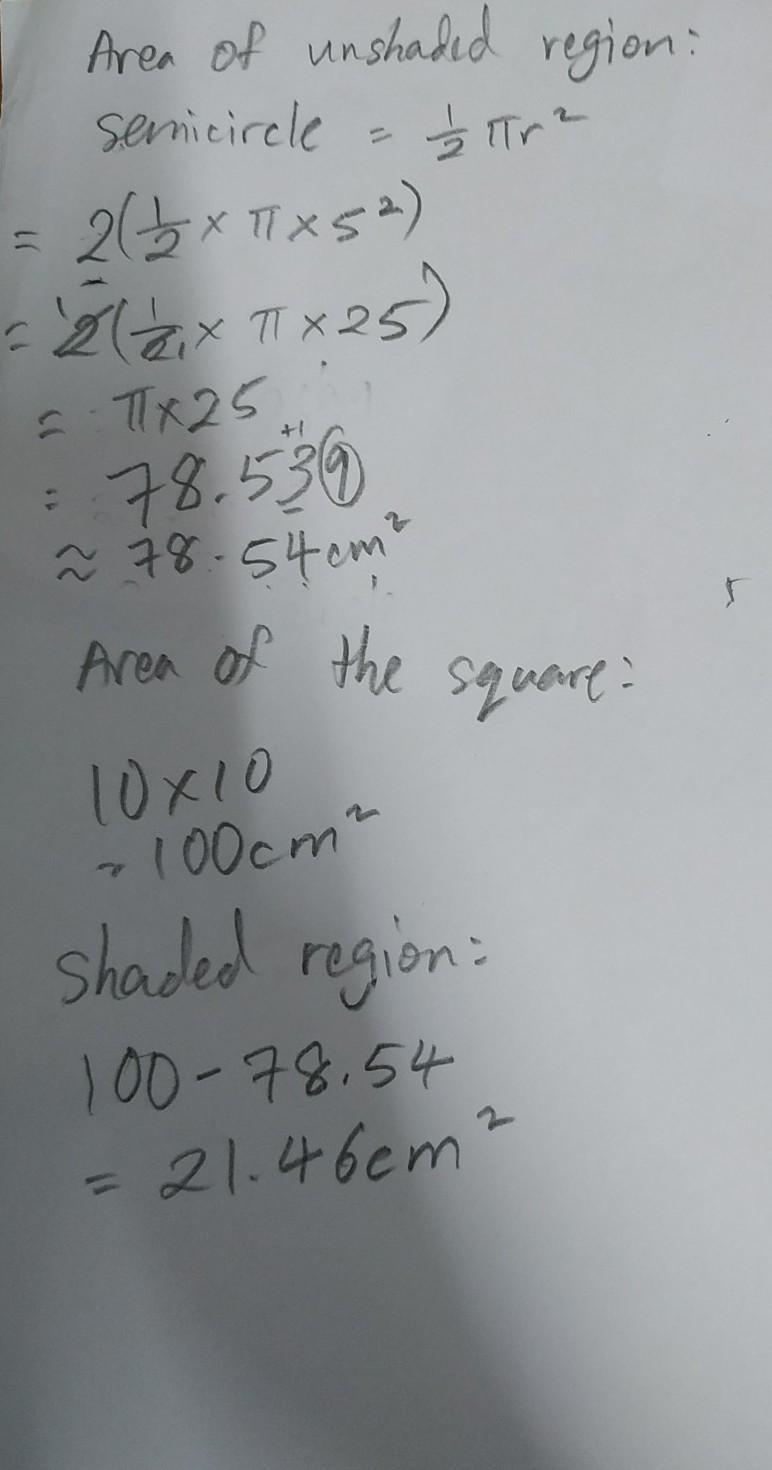 Area of unshaded region:
semicircle = 1/2 πr²
= 2(1/2 × π × 5²)
= 2(1/2 × π × 25)
= π×25
= 78.539
+1
≈ 78.54cm²
Area of the square:
10×10
= 100cm²
Shaded region:
100-78.54
= 21.46cm²